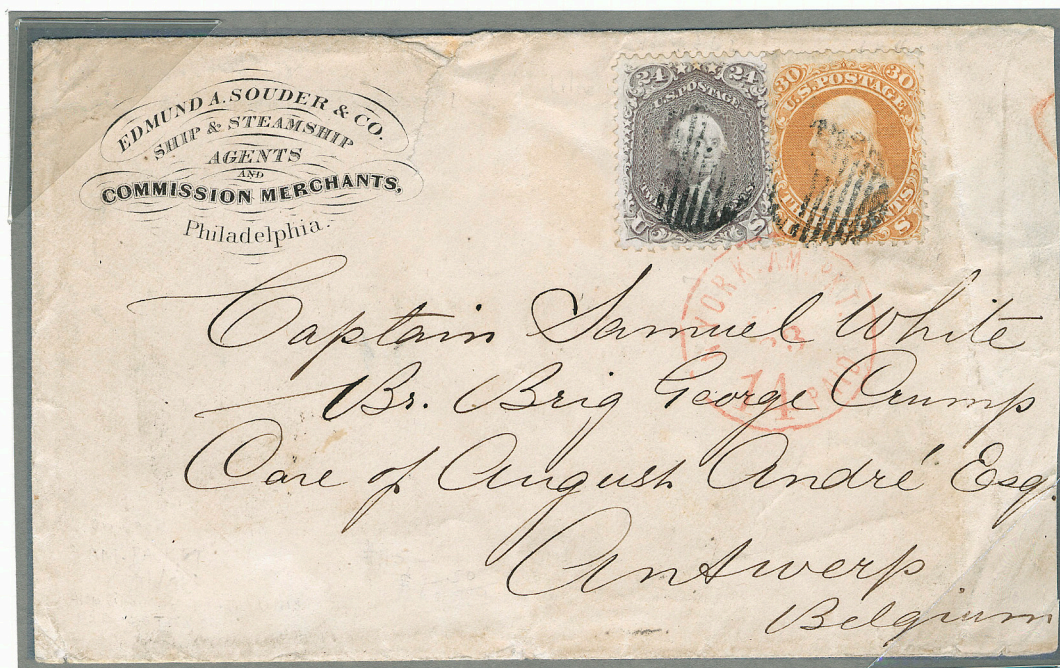 EDMUND A. SOUDER & CO.
SHIP & STEAMSHIP
AGENTS
AND
COMMISSION MERCHANTS,
Philadelphia.
24 24
U.S. POSTAGE
U S
30 30
U.S. POSTAGE
CENTS
S
YORK AM. PKT.
14
PAID
Captain Samuel White
Br. Brig George Crump
Care of August André Esq.
Antwerp
Belgium